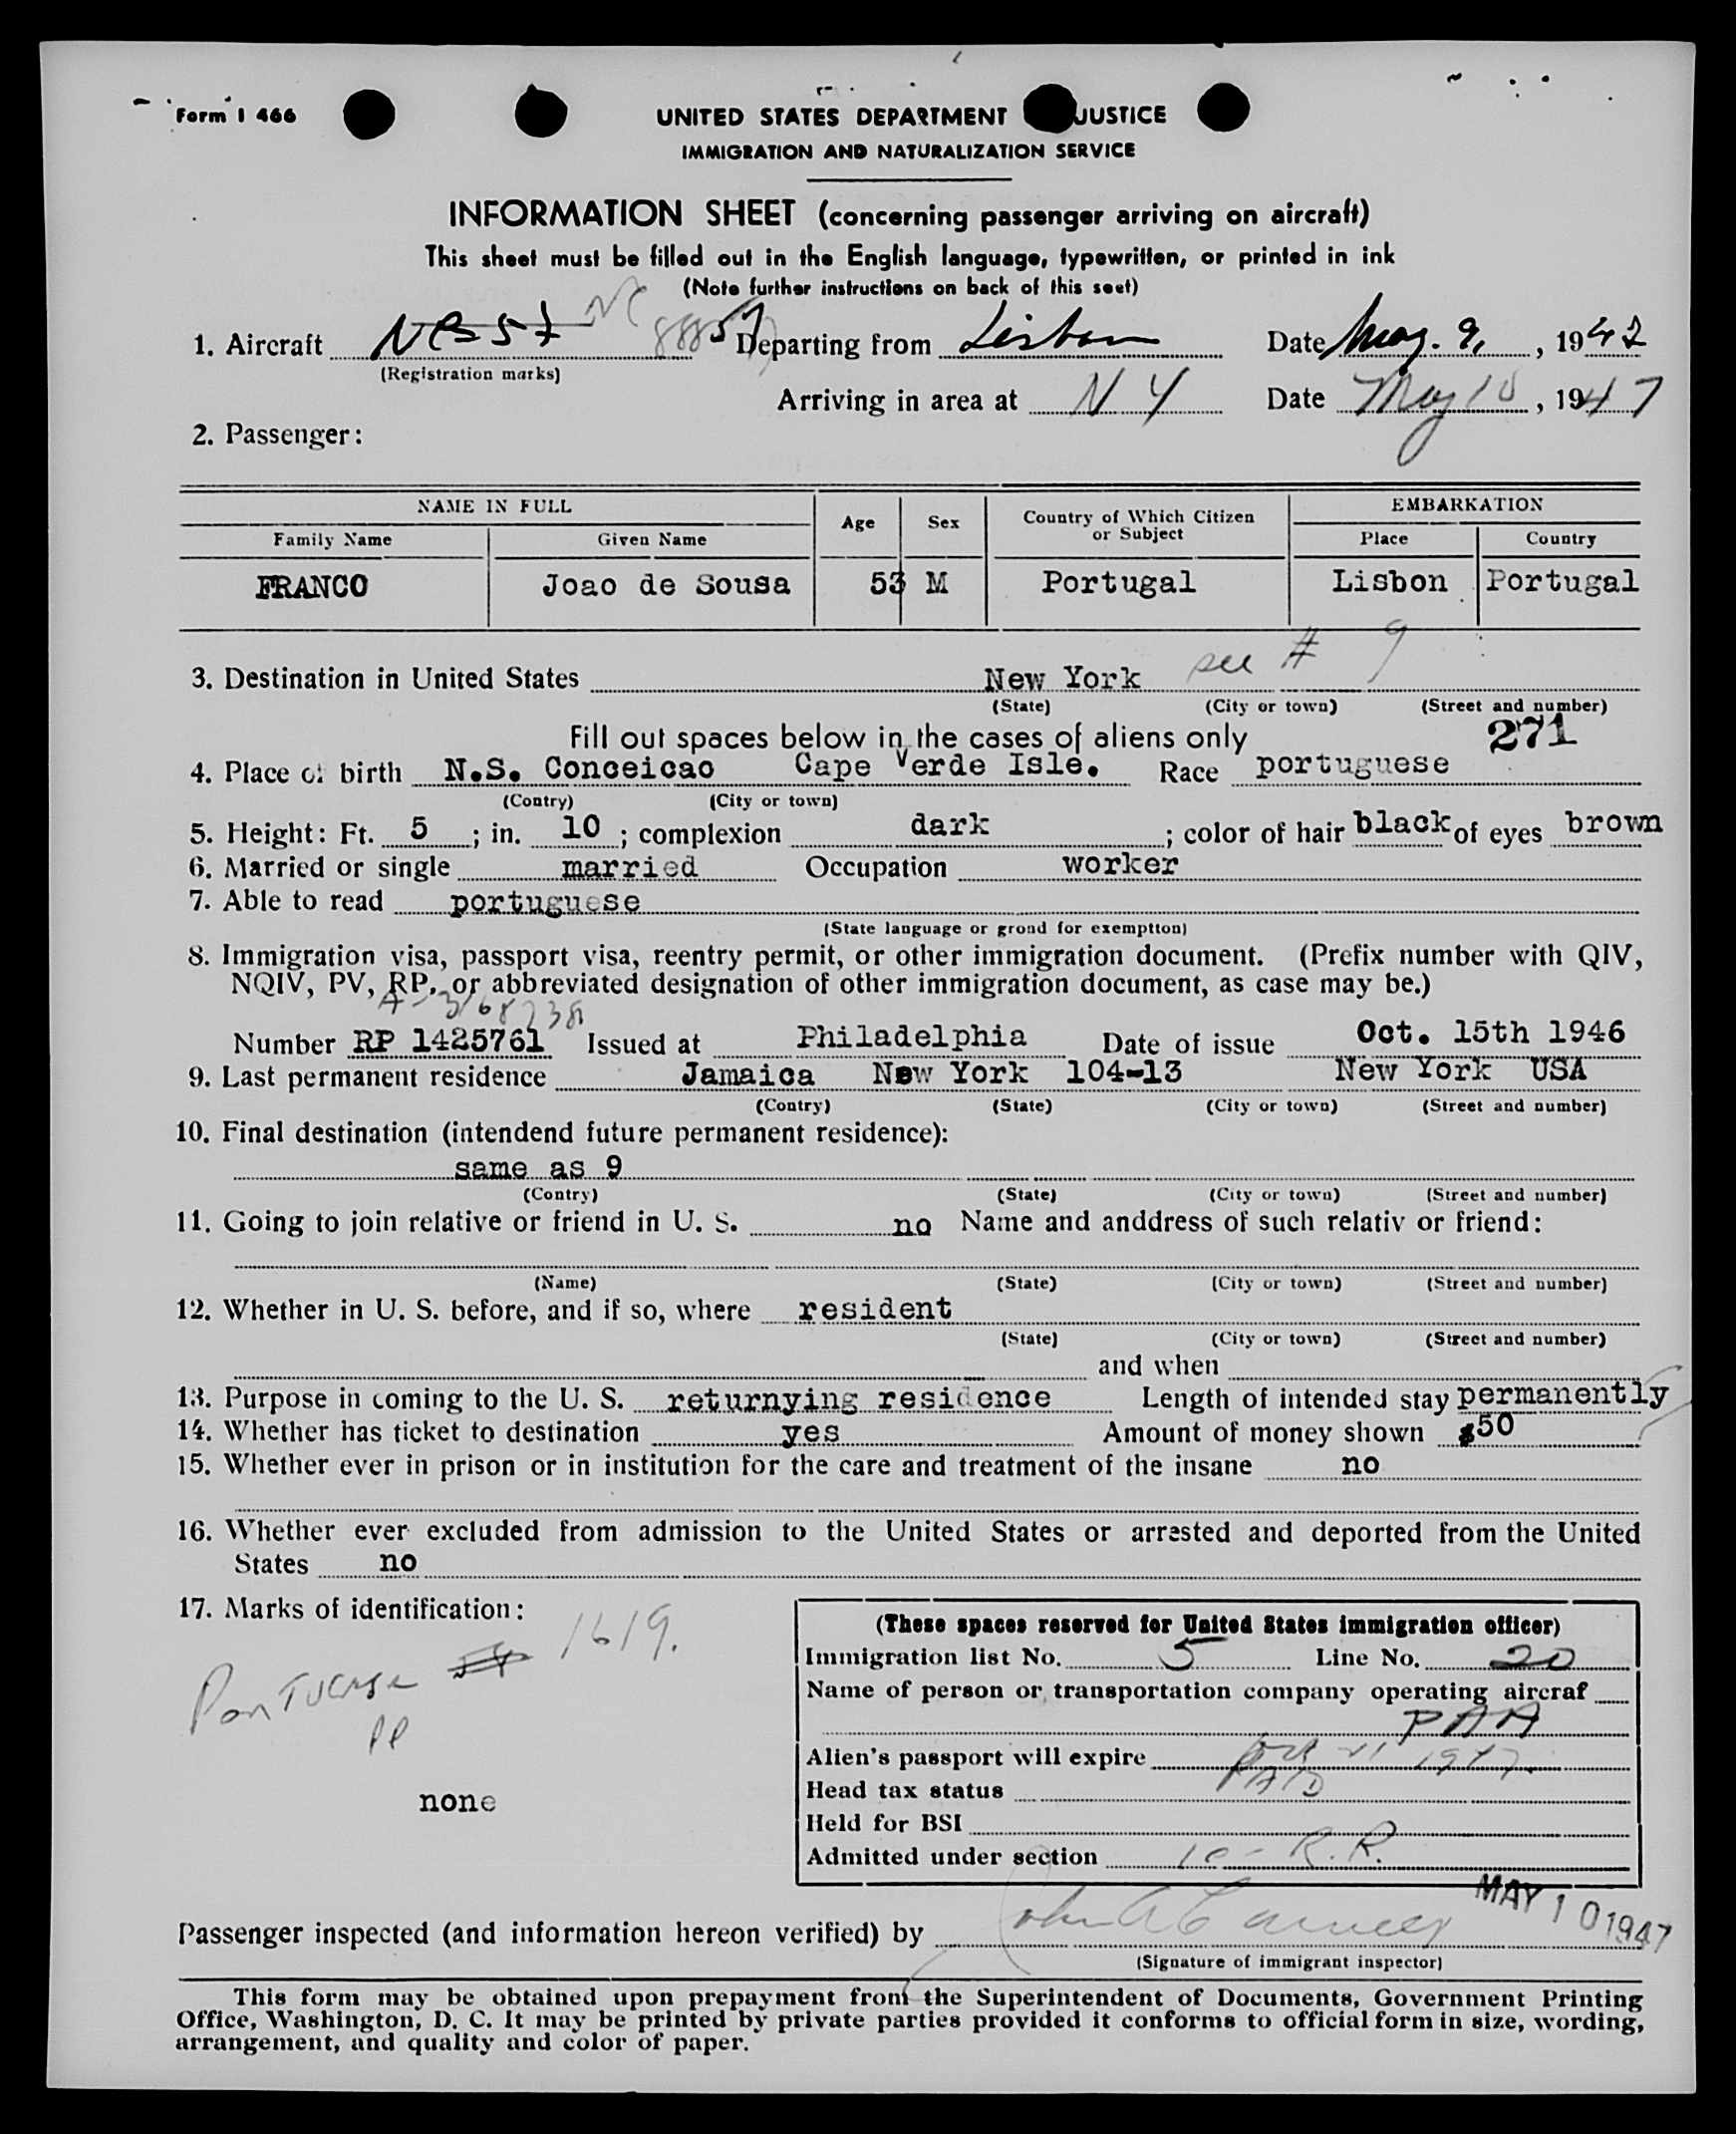 Form I 466
UNITED STATES DEPARTMENT JUSTICE
IMMIGRATION AND NATURALIZATION SERVICE
INFORMATION SHEET (concerning passenger arriving on aircraft)
This sheet must be filled out in the English language, typewritten, or printed in ink
(Note further instructions on back of this seet)
1. Aircraft NC 88857 Departing from Lisbon Date May. 9, 1947
(Registration marks)
Arriving in area at N Y Date May 10, 1947
2. Passenger:
NAME IN FULL Age Sex Country of Which Citizen or Subject EMBARKATION
Family Name Given Name Place Country
FRANCO Joao de Sousa 53 M Portugal Lisbon Portugal
3. Destination in United States New York see # 9
(State) (City or town) (Street and number)
Fill out spaces below in the cases of aliens only 271
4. Place of birth N.S. Conceicao Cape Verde Isle. Race portuguese
(Contry) (City or town)
5. Height: Ft. 5 ; in. 10 ; complexion dark ; color of hair black of eyes brown
6. Married or single married Occupation worker
7. Able to read portuguese
(State language or grond for exemptton)
8. Immigration visa, passport visa, reentry permit, or other immigration document. (Prefix number with QIV,
NQIV, PV, RP, or abbreviated designation of other immigration document, as case may be.)
Number RP 1425761 Issued at Philadelphia Date of issue Oct. 15th 1946
9. Last permanent residence Jamaica New York 104-13 New York USA
(Contry) (State) (City or town) (Street and number)
10. Final destination (intendend future permanent residence):
same as 9
(Contry) (State) (City or town) (Street and number)
11. Going to join relative or friend in U. S. no Name and anddress of such relativ or friend:
(Name) (State) (City or town) (Street and number)
12. Whether in U. S. before, and if so, where resident
(State) (City or town) (Street and number)
and when
13. Purpose in coming to the U. S. returnying residence Length of intended stay permanently
14. Whether has ticket to destination yes Amount of money shown $50
15. Whether ever in prison or in institution for the care and treatment of the insane no
16. Whether ever excluded from admission to the United States or arrested and deported from the United
States no
17. Marks of identification:
1619.
Portuguese
PP
none
(These spaces reserved for United States immigration officer)
Immigration list No. 5 Line No. 20
Name of person or transportation company operating aircraf
PAA
Alien's passport will expire 1947
Head tax status PAID
Held for BSI
Admitted under section 10 - R.R.
MAY 10 1947
Passenger inspected (and information hereon verified) by
(Signature of immigrant inspector)
This form may be obtained upon prepayment from the Superintendent of Documents, Government Printing
Office, Washington, D. C. It may be printed by private parties provided it conforms to official form in size, wording,
arrangement, and quality and color of paper.